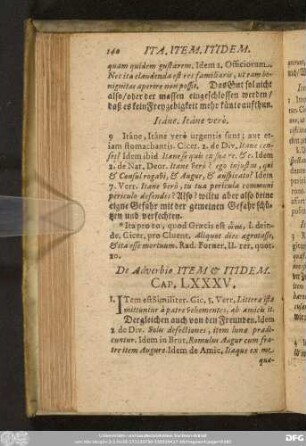 140 ITA, ITEM, ITIDEM.
quam quidem gustarem. Idem 2. Officiorum.
Nec ita claudenda est res familiaris, ut eam be-
nignitas aperire non possit. Das Gut sol nicht
also/ oder der massen eingeschlossen werden/
daß es kein Freygebigkeit mehr könte aufthun.
Itáne, Itáne verò.
9 Itáne, Itáne verò urgentis sunt; aut et-
iam stomachantis. Cicer. 2. de Div. Itane cen-
ses? Idem ibid. Itane si quis ex sua re, &c. Idem
2. de Nat. Deor. Itane verò? ego injustus, qui
& Consul rogabi, & Augur, & auspicato? Idem
7. Verr. Itane verò, tu tua pericula communi
periculo defendes? Also? wiltu aber also deine
eigne Gefahr mit der gemeinen Gefahr schü-
tzen und verfechten.
* Ita pro quod Græcis est deinde
do. Cicer. pro Cluent. Aliquot dies ægrotasse,
& ita esse mortuum. Rad. Forner. II. rer. quot.
20.
De Adverbio ITEM & ITIDEM.
CAP. LXXXV.
1. ITem est Similiter. Cic. 5. Verr. Litteræ ita
mittuntur à patre vehementes, ab amicis it.
Dergleichen auch von den Freunden. Idem
2 de Div. Solis defectiones, item lunæ prædi-
cuntur. Idem in Brut. Romulus Augur cum fra-
tre item Augure. Idem de Amic. Itaque ex me
que-